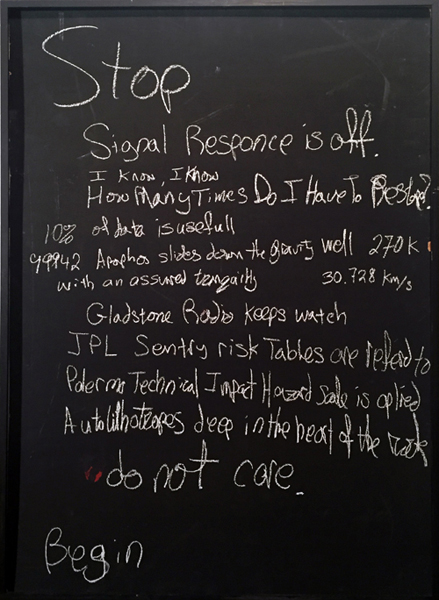 Stop
Signal Responce is off.
I know, I know
How Many Times Do I Have To Restore?
10% of data is usefull
99942 Apophos slides down the gravity well 270K
with an assured tenquity 30.728 km/s
Gladstone Radio keeps watch
JPL Sentry risk Tables are referd to
Palermo Technical Impact Hazard Scale is aplied
Autolithotropes deep in the heart of the rock
do not care.
Begin